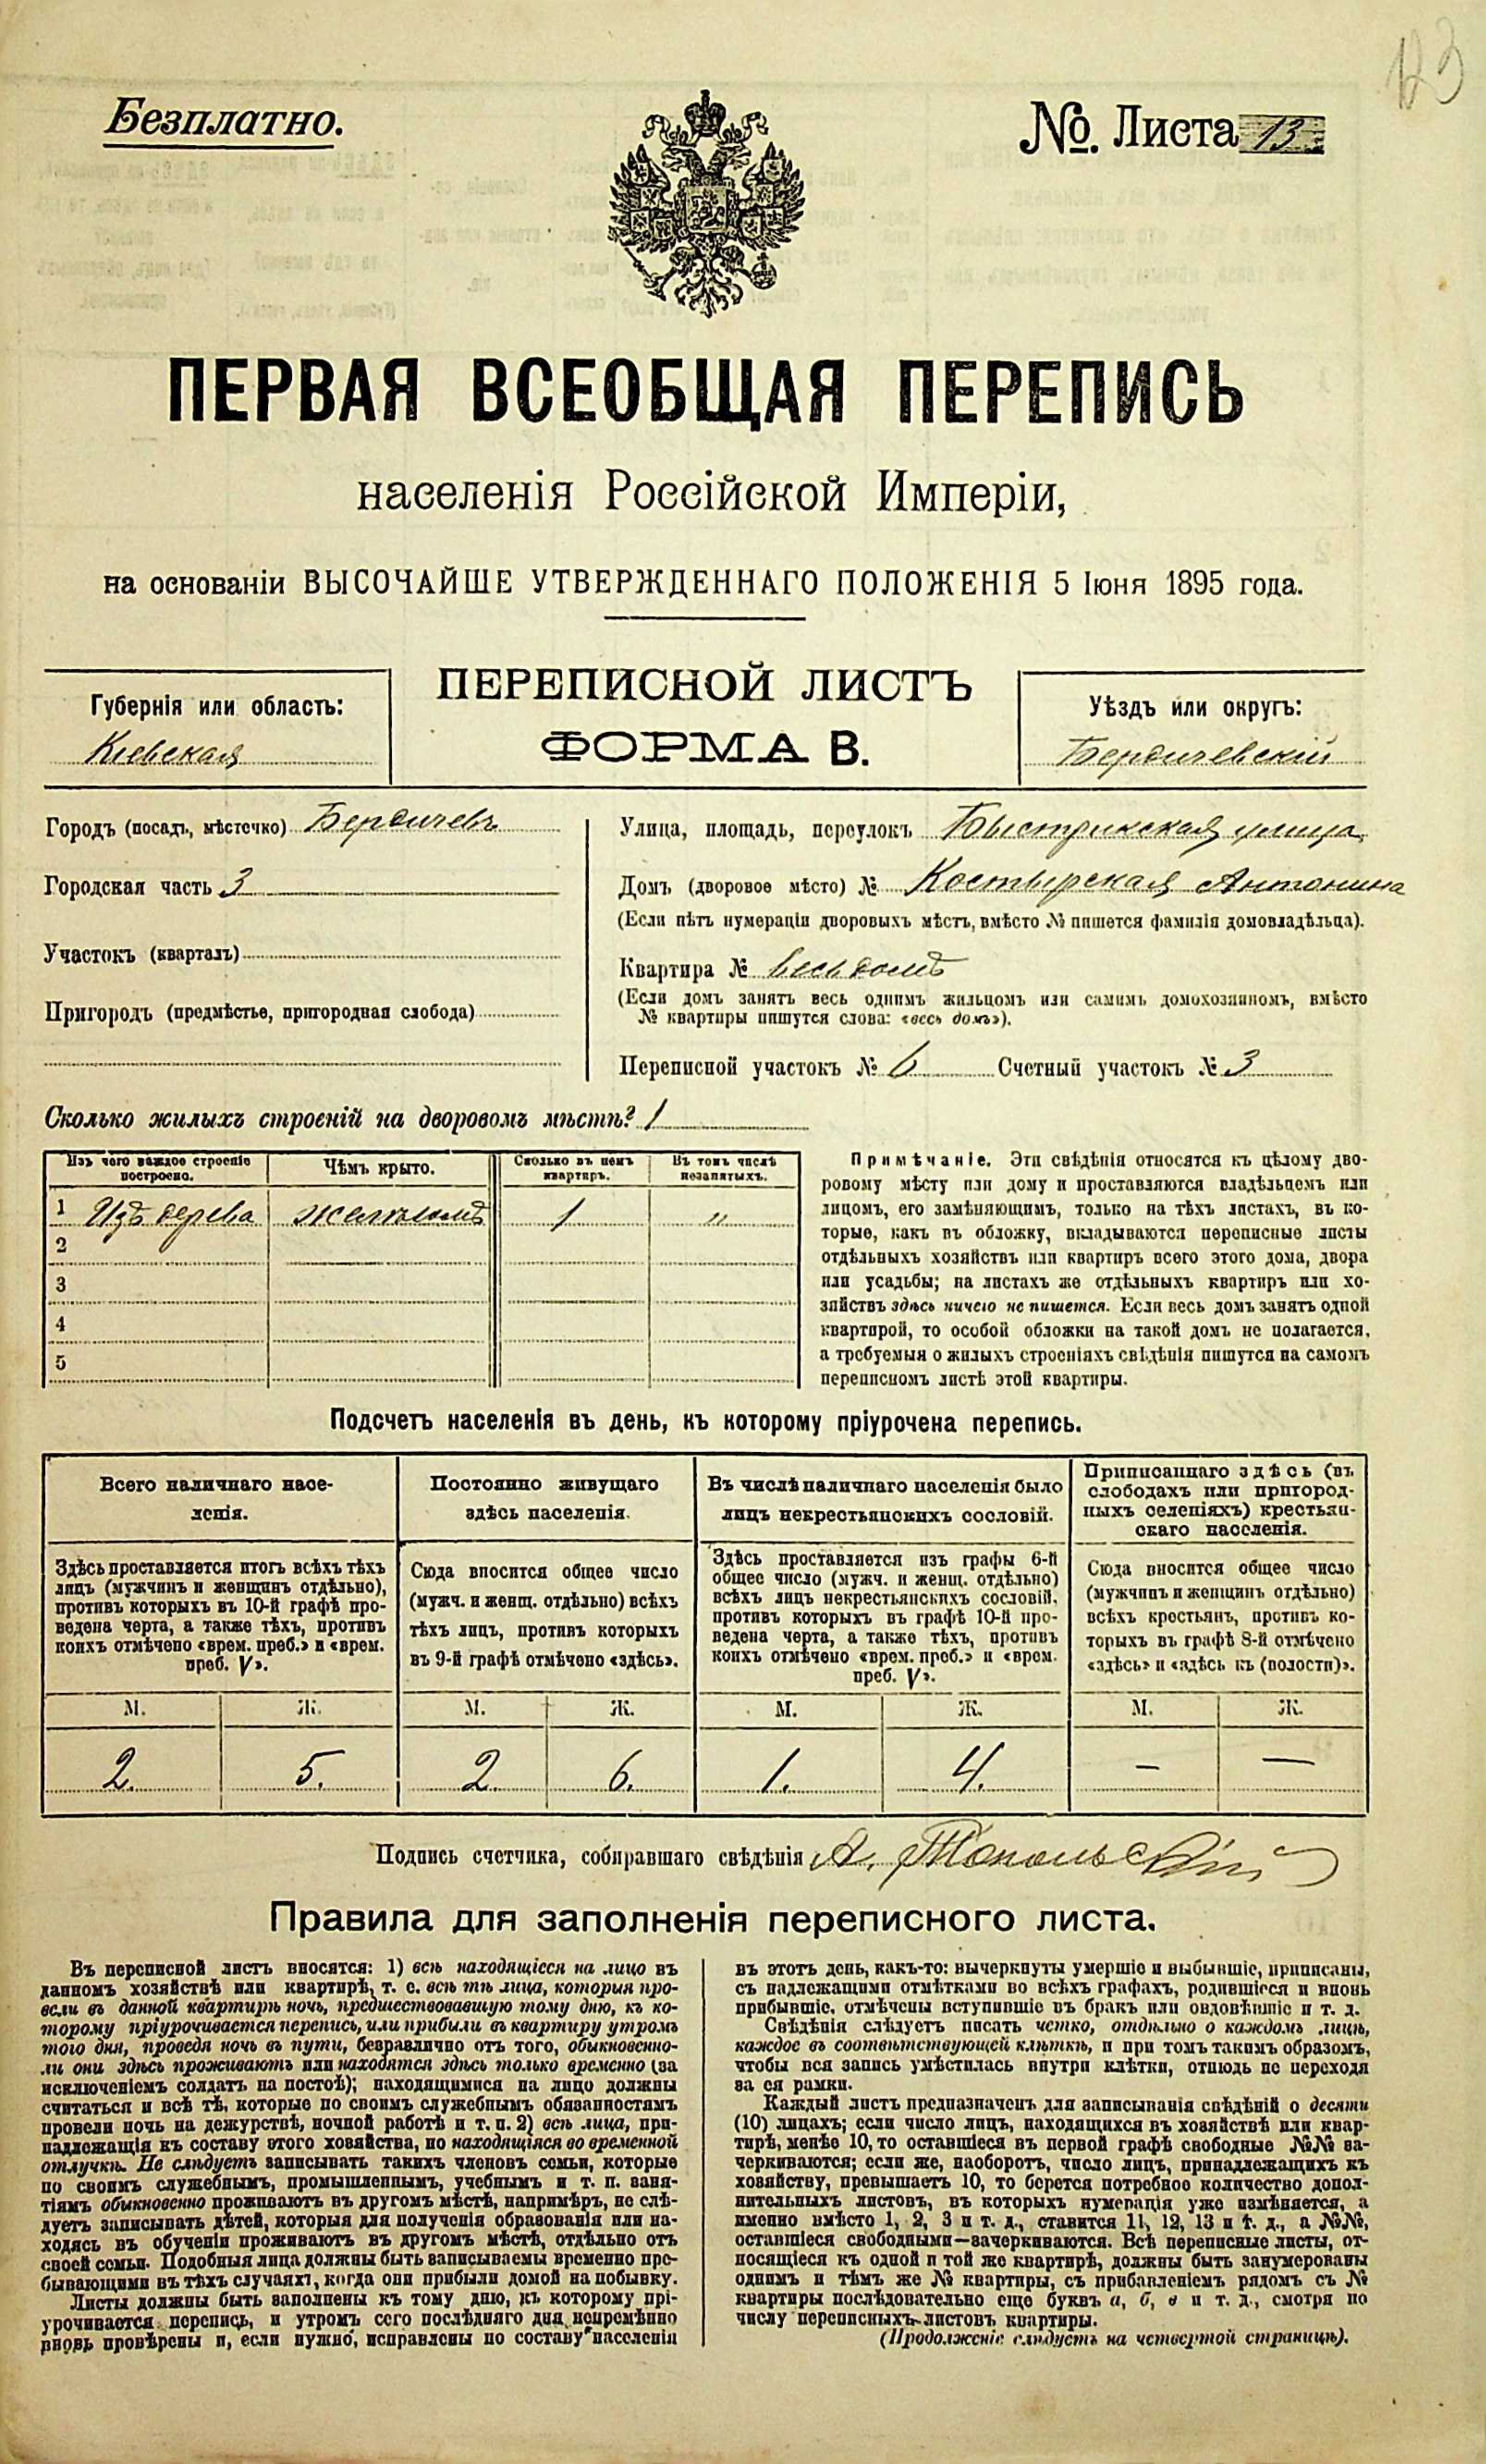 123
Безплатно.
№. Листа 13
ПЕРВАЯ ВСЕОБЩАЯ ПЕРЕПИСЬ
населенія Россійской Имперіи,
на основаніи ВЫСОЧАЙШЕ УТВЕРЖДЕННАГО ПОЛОЖЕНІЯ 5 Іюня 1895 года.
Губернія или область:
Кіевская
ПЕРЕПИСНОЙ ЛИСТЪ
ФОРМА В.
Уѣздъ или округъ:
Бердичевскій
Городъ (посадъ, мѣстечко) Бердичевъ
Городская часть 3
Участокъ (кварталъ)
Пригородъ (предмѣстье, пригородная слобода)
Улица, площадь, переулокъ Быстрикская улица,
Домъ (дворовое мѣсто) № Костырская Антонина
(Если нѣтъ нумераціи дворовыхъ мѣстъ, вмѣсто № пишется фамилія домовладѣльца).
Квартира № весь домъ
(Если домъ занятъ весь однимъ жильцомъ или самимъ домохозяиномъ, вмѣсто
№ квартиры пишутся слова: «весь домъ»).
Переписной участокъ № 6 Счетный участокъ № 3
Сколько жилыхъ строеній на дворовомъ мѣстѣ? 1
Изъ чего каждое строеніе
построено.
Чѣмъ крыто.
Сколько въ немъ
квартиръ.
Въ томъ числѣ
незанятыхъ.
1 Изъ дерева желѣзомъ 1 "
2
3
4
5
Примѣчаніе. Эти свѣдѣнія относятся къ цѣлому дво-
ровому мѣсту или дому и проставляются владѣльцемъ или
лицомъ, его замѣняющимъ, только на тѣхъ листахъ, въ ко-
торые, какъ въ обложку, вкладываются переписные листы
отдѣльныхъ хозяйствъ или квартиръ всего этого дома, двора
или усадьбы; на листахъ же отдѣльныхъ квартиръ или хо-
зяйствъ здѣсь ничего не пишется. Если весь домъ занятъ одной
квартирой, то особой обложки на такой домъ не полагается,
а требуемыя о жилыхъ строеніяхъ свѣдѣнія пишутся на самомъ
переписномъ листѣ этой квартиры.
Подсчетъ населенія въ день, къ которому пріурочена перепись.
Всего наличнаго насе-
ленія.
Постоянно живущаго
здѣсь населенія.
Въ числѣ наличнаго населенія было
лицъ некрестьянскихъ сословій.
Приписаннаго здѣсь (въ
слободахъ или пригород-
ныхъ селеніяхъ) крестьян-
скаго населенія.
Здѣсь проставляется итогъ всѣхъ тѣхъ
лицъ (мужчинъ и женщинъ отдѣльно),
противъ которыхъ въ 10-й графѣ про-
ведена черта, а также тѣхъ, противъ
коихъ отмѣчено «врем. преб.» и «врем.
преб. V».
Сюда вносится общее число
(мужч. и женщ. отдѣльно) всѣхъ
тѣхъ лицъ, противъ которыхъ
въ 9-й графѣ отмѣчено «здѣсь».
Здѣсь проставляется изъ графы 6-й
общее число (мужч. и женщ. отдѣльно)
всѣхъ лицъ некрестьянскихъ сословій,
противъ которыхъ въ графѣ 10-й про-
ведена черта, а также тѣхъ, противъ
коихъ отмѣчено «врем. преб.» и «врем.
преб. V».
Сюда вносится общее число
(мужчинъ и женщинъ отдѣльно)
всѣхъ крестьянъ, противъ ко-
торыхъ въ графѣ 8-й отмѣчено
«здѣсь» и «здѣсь къ (волости)».
М. Ж. М. Ж. М. Ж. М. Ж.
2. 5. 2 6. 1. 4. — —
Подпись счетчика, собиравшаго свѣдѣнія А. Топольскій
Правила для заполненія переписного листа.
Въ переписной листъ вносятся: 1) всѣ находящіеся на лицо въ
данномъ хозяйствѣ или квартирѣ, т. е. всѣ тѣ лица, которыя про-
вели въ данной квартирѣ ночь, предшествовавшую тому дню, къ ко-
торому пріурочивается перепись, или прибыли въ квартиру утромъ
того дня, проведя ночь въ пути, безразлично отъ того, обыкновенно-
ли они здѣсь проживаютъ или находятся здѣсь только временно (за
исключеніемъ солдатъ на постоѣ); находящимися на лицо должны
считаться и всѣ тѣ, которые по своимъ служебнымъ обязанностямъ
провели ночь на дежурствѣ, ночной работѣ и т. п. 2) всѣ лица, при-
надлежащія къ составу этого хозяйства, но находящіяся во временной
отлучкѣ. Не слѣдуетъ записывать такихъ членовъ семьи, которые
по своимъ служебнымъ, промышленнымъ, учебнымъ и т. п. заня-
тіямъ обыкновенно проживаютъ въ другомъ мѣстѣ, напримѣръ, не слѣ-
дуетъ записывать дѣтей, которыя для полученія образованія или на-
ходясь въ обученіи проживаютъ въ другомъ мѣстѣ, отдѣльно отъ
своей семьи. Подобныя лица должны быть записываемы временно пре-
бывающими въ тѣхъ случаяхъ, когда они прибыли домой на побывку.
Листы должны быть заполнены къ тому дню, къ которому прі-
урочивается перепись, и утромъ сего послѣдняго дня непремѣнно
вновь провѣрены и, если нужно, исправлены по составу населенія
въ этотъ день, какъ-то: вычеркнуты умершіе и выбывшіе, приписаны,
съ надлежащими отмѣтками во всѣхъ графахъ, родившіеся и вновь
прибывшіе, отмѣчены вступившіе въ бракъ или овдовѣвшіе и т. д.
Свѣдѣнія слѣдуетъ писать четко, отдѣльно о каждомъ лицѣ,
каждое въ соотвѣтствующей клѣткѣ, и при томъ такимъ образомъ,
чтобы вся запись умѣстилась внутри клѣтки, отнюдь не переходя
за ея рамки.
Каждый листъ предназначенъ для записыванія свѣдѣній о десяти
(10) лицахъ; если число лицъ, находящихся въ хозяйствѣ или квар-
тирѣ, менѣе 10, то оставшіеся въ первой графѣ свободные №№ за-
черкиваются; если же, наоборотъ, число лицъ, принадлежащихъ къ
хозяйству, превышаетъ 10, то берется потребное количество допол-
нительныхъ листовъ, въ которыхъ нумерація уже измѣняется, а
именно вмѣсто 1, 2, 3 и т. д., ставится 11, 12, 13 и т. д., а №№,
оставшіеся свободными—зачеркиваются. Всѣ переписные листы, от-
носящіеся къ одной и той же квартирѣ, должны быть занумерованы
однимъ и тѣмъ же № квартиры, съ прибавленіемъ рядомъ съ №
квартиры послѣдовательно еще буквъ а, б, в и т. д., смотря по
числу переписныхъ листовъ квартиры.
(Продолженіе слѣдуетъ на четвертой страницѣ).